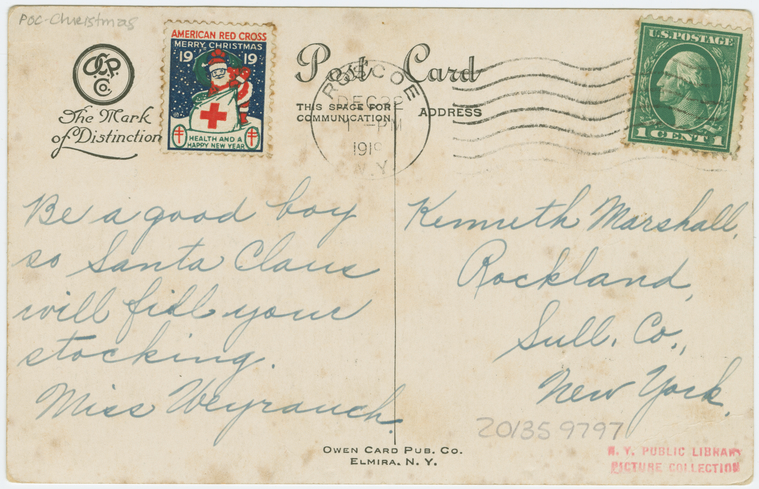 POC-Christmas
O.C.P. Co.
The Mark
of Distinction
AMERICAN RED CROSS
MERRY CHRISTMAS
1919
HEALTH AND A
HAPPY NEW YEAR
Post Card
THIS SPACE FOR
COMMUNICATION
ADDRESS
ROSCOE
DEC 22
1-PM
1919
N.Y.
U.S. POSTAGE
1 CENT 1
Be a good boy
so Santa Claus
will fill your
stocking.
Miss Weyrauch.
Kenneth Marshall,
Rockland,
Sull. Co.,
New York.
20135 9797
OWEN CARD PUB. CO.
ELMIRA, N. Y.
N. Y. PUBLIC LIBRARY
PICTURE COLLECTION